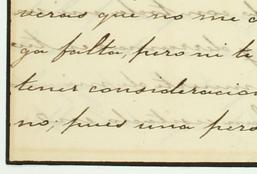 veras que no me
ga falta, pero ni te
tener consideracion
no, pues una pero